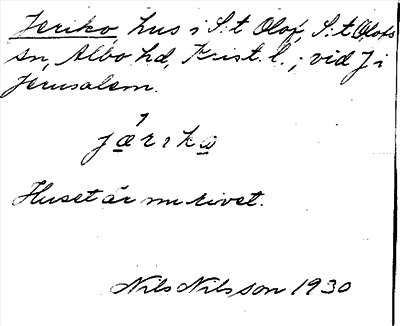 Jeriko, hus i S:t Olof, S:t Olofs
sn, Albo hd, Krist. l.; vid J i
Jerusalem.
Huset är nu rivet.
Nils Nilsson 1930